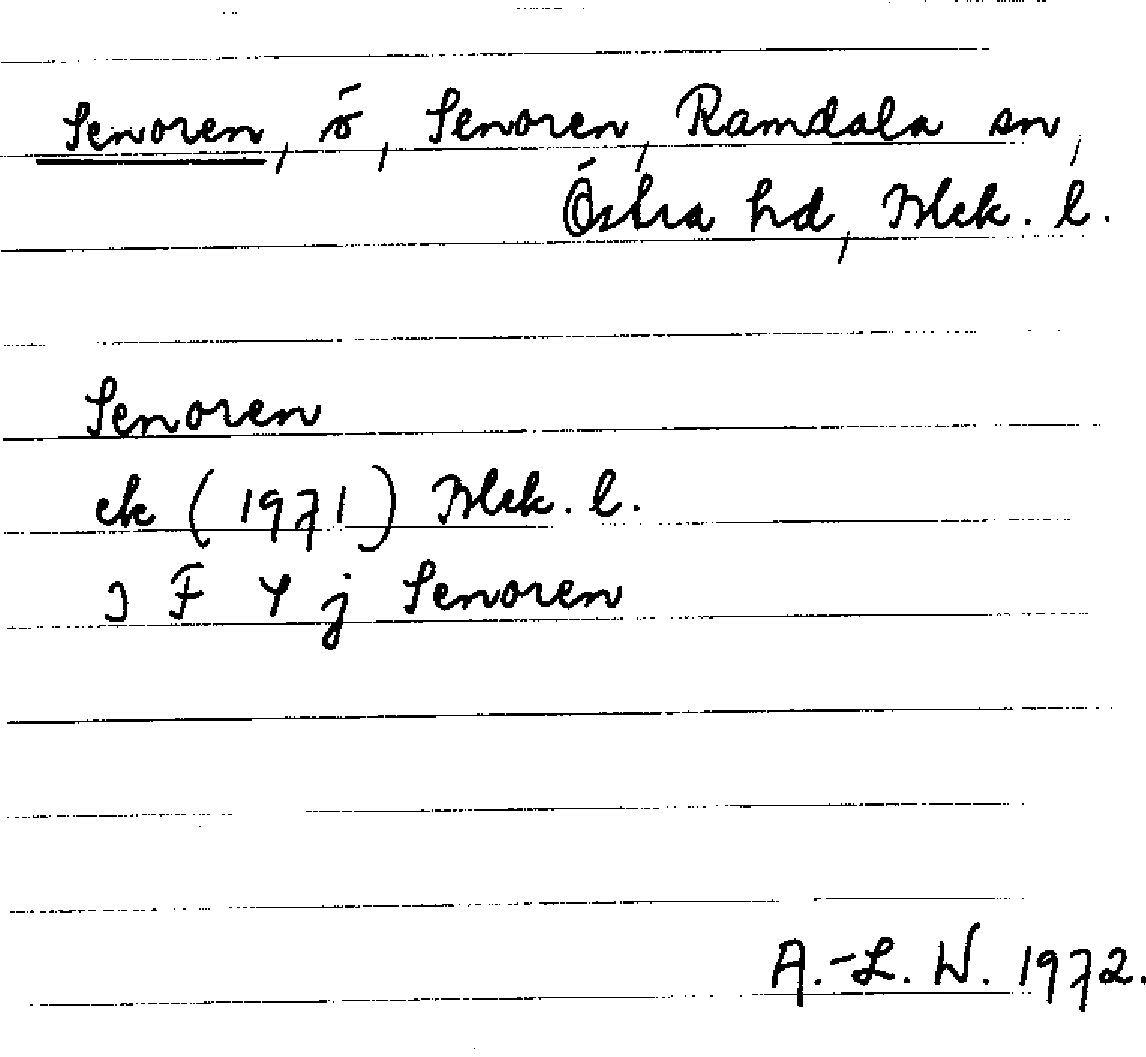 Senoren, ö, Senoren, Ramdala sn,
Östra hd, Blek. l.
Senoren
ek (1971) Blek. l.
3 F Y j Senoren
A.-L. W. 1972.